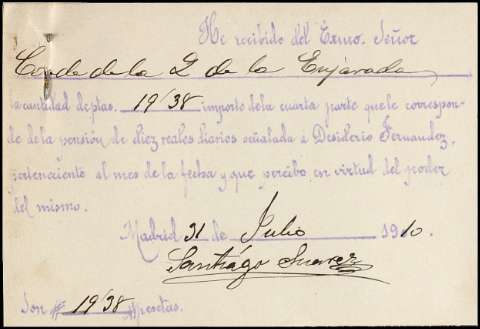 He recibido del Excmo. Señor
Conde de la E de la Enjarada
la cantidad de ptas. 19/38 importe de la cuarta parte que le correspon-
de de la pensión de diez reales diarios señalada á Desiderio Fernandez,
perteneciente al mes de la fecha y que percibo en virtud del poder
del mismo.
Madrid 31 de Julio 1910.
Santiágo Suarez
Son # 19/38 # pesetas.